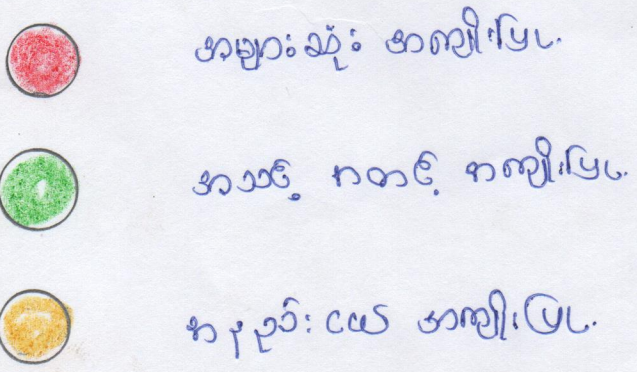 အများဆုံး အကျိုးပြု
အသင့် အတင့် အကျိုးပြု
အနည်းငယ် အကျိုးပြု